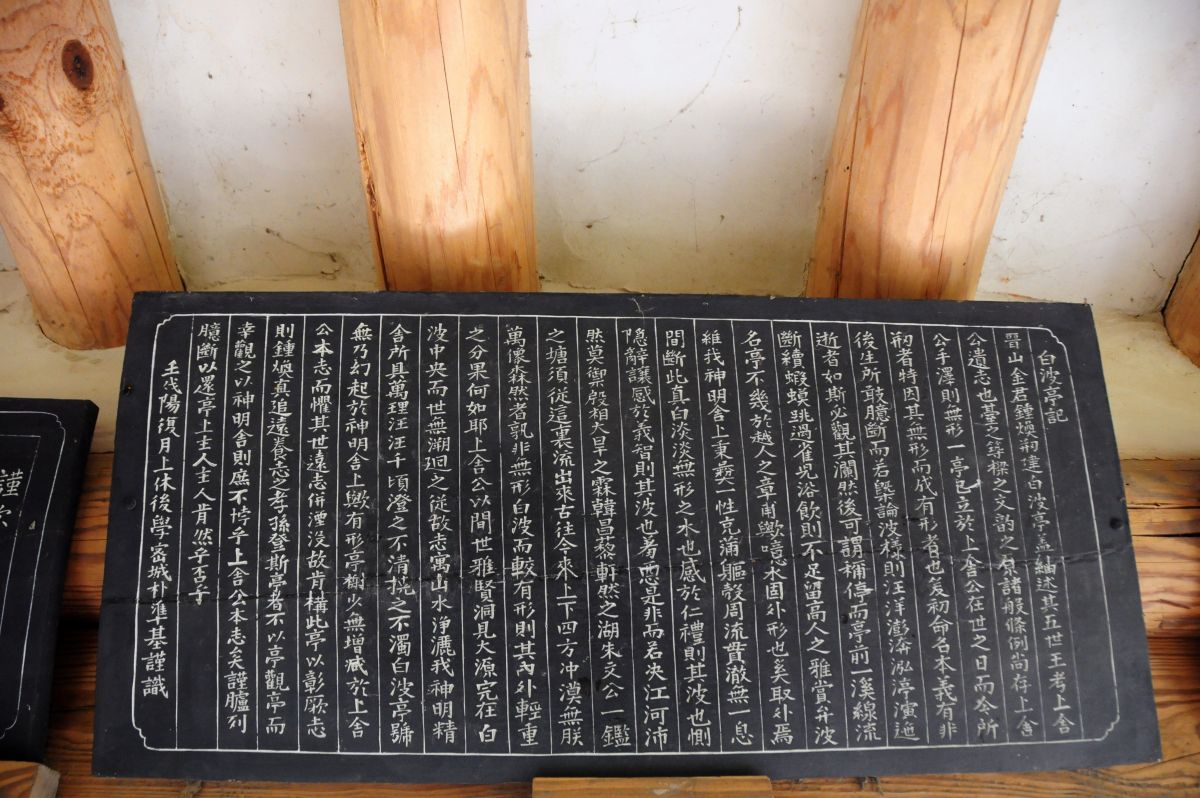 白波亭記
晋山金君鍾煥甫建白波亭盖紬述其五世王考上舍
公遺志也基之等樑之文韵之頁諸般條例尚存上舍
公手澤則無形一亭已立於上舍公在世之日而今所
刱者特因其無形而成有形者也爰初命名本義有非
後生所敢臆斷而若槩論波樣則汪洋澎湃泓渟演迆
逝者如斯必觀其瀾然後可謂稱停而亭前一溪線流
斷續蝦蟆跳過雀兒浴飲則不足留高人之雅賞弁波
名亭不幾於越人之章甫歟噫水固外形也奚取外焉
維我神明舍上秉彜一性亰蒲軀殼周流貫澈無一息
間斷此真白淡淡無形之水也感於仁禮則其波也惻
隐辭讓感於義智則其波也羞惡是非而若决江河沛
然莫禦殷相大旱之霖韓昌黎軒然之湖朱文公一鑑
之塘須從這裏流出來古往今來上下四方冲漠無朕
萬像森然者孰非無形白波而較有形則其內外輕重
之分果何如耶上舍公以間世雅賢洞見大源完在白
波中央而世無溯廻之從故志寓山水淨灑我神明精
舍所具萬理汪汪千頃澄之不清撓之不濁白波亭號
無乃幻起於神明舍上歟有形亭榭少無增减於上舍
公本志而懼其世遠志併湮没故肯構此亭以彰厥志
則鍾煥真追遠養志之孝孫登斯亭者不以亭觀亭而
幸觀之以神明舍則庶不悖乎上舍公本志矣謹臚列
臆斷以還亭上主人主人肯然乎否乎
壬戌陽復月上休後學密城朴準基謹識
謹